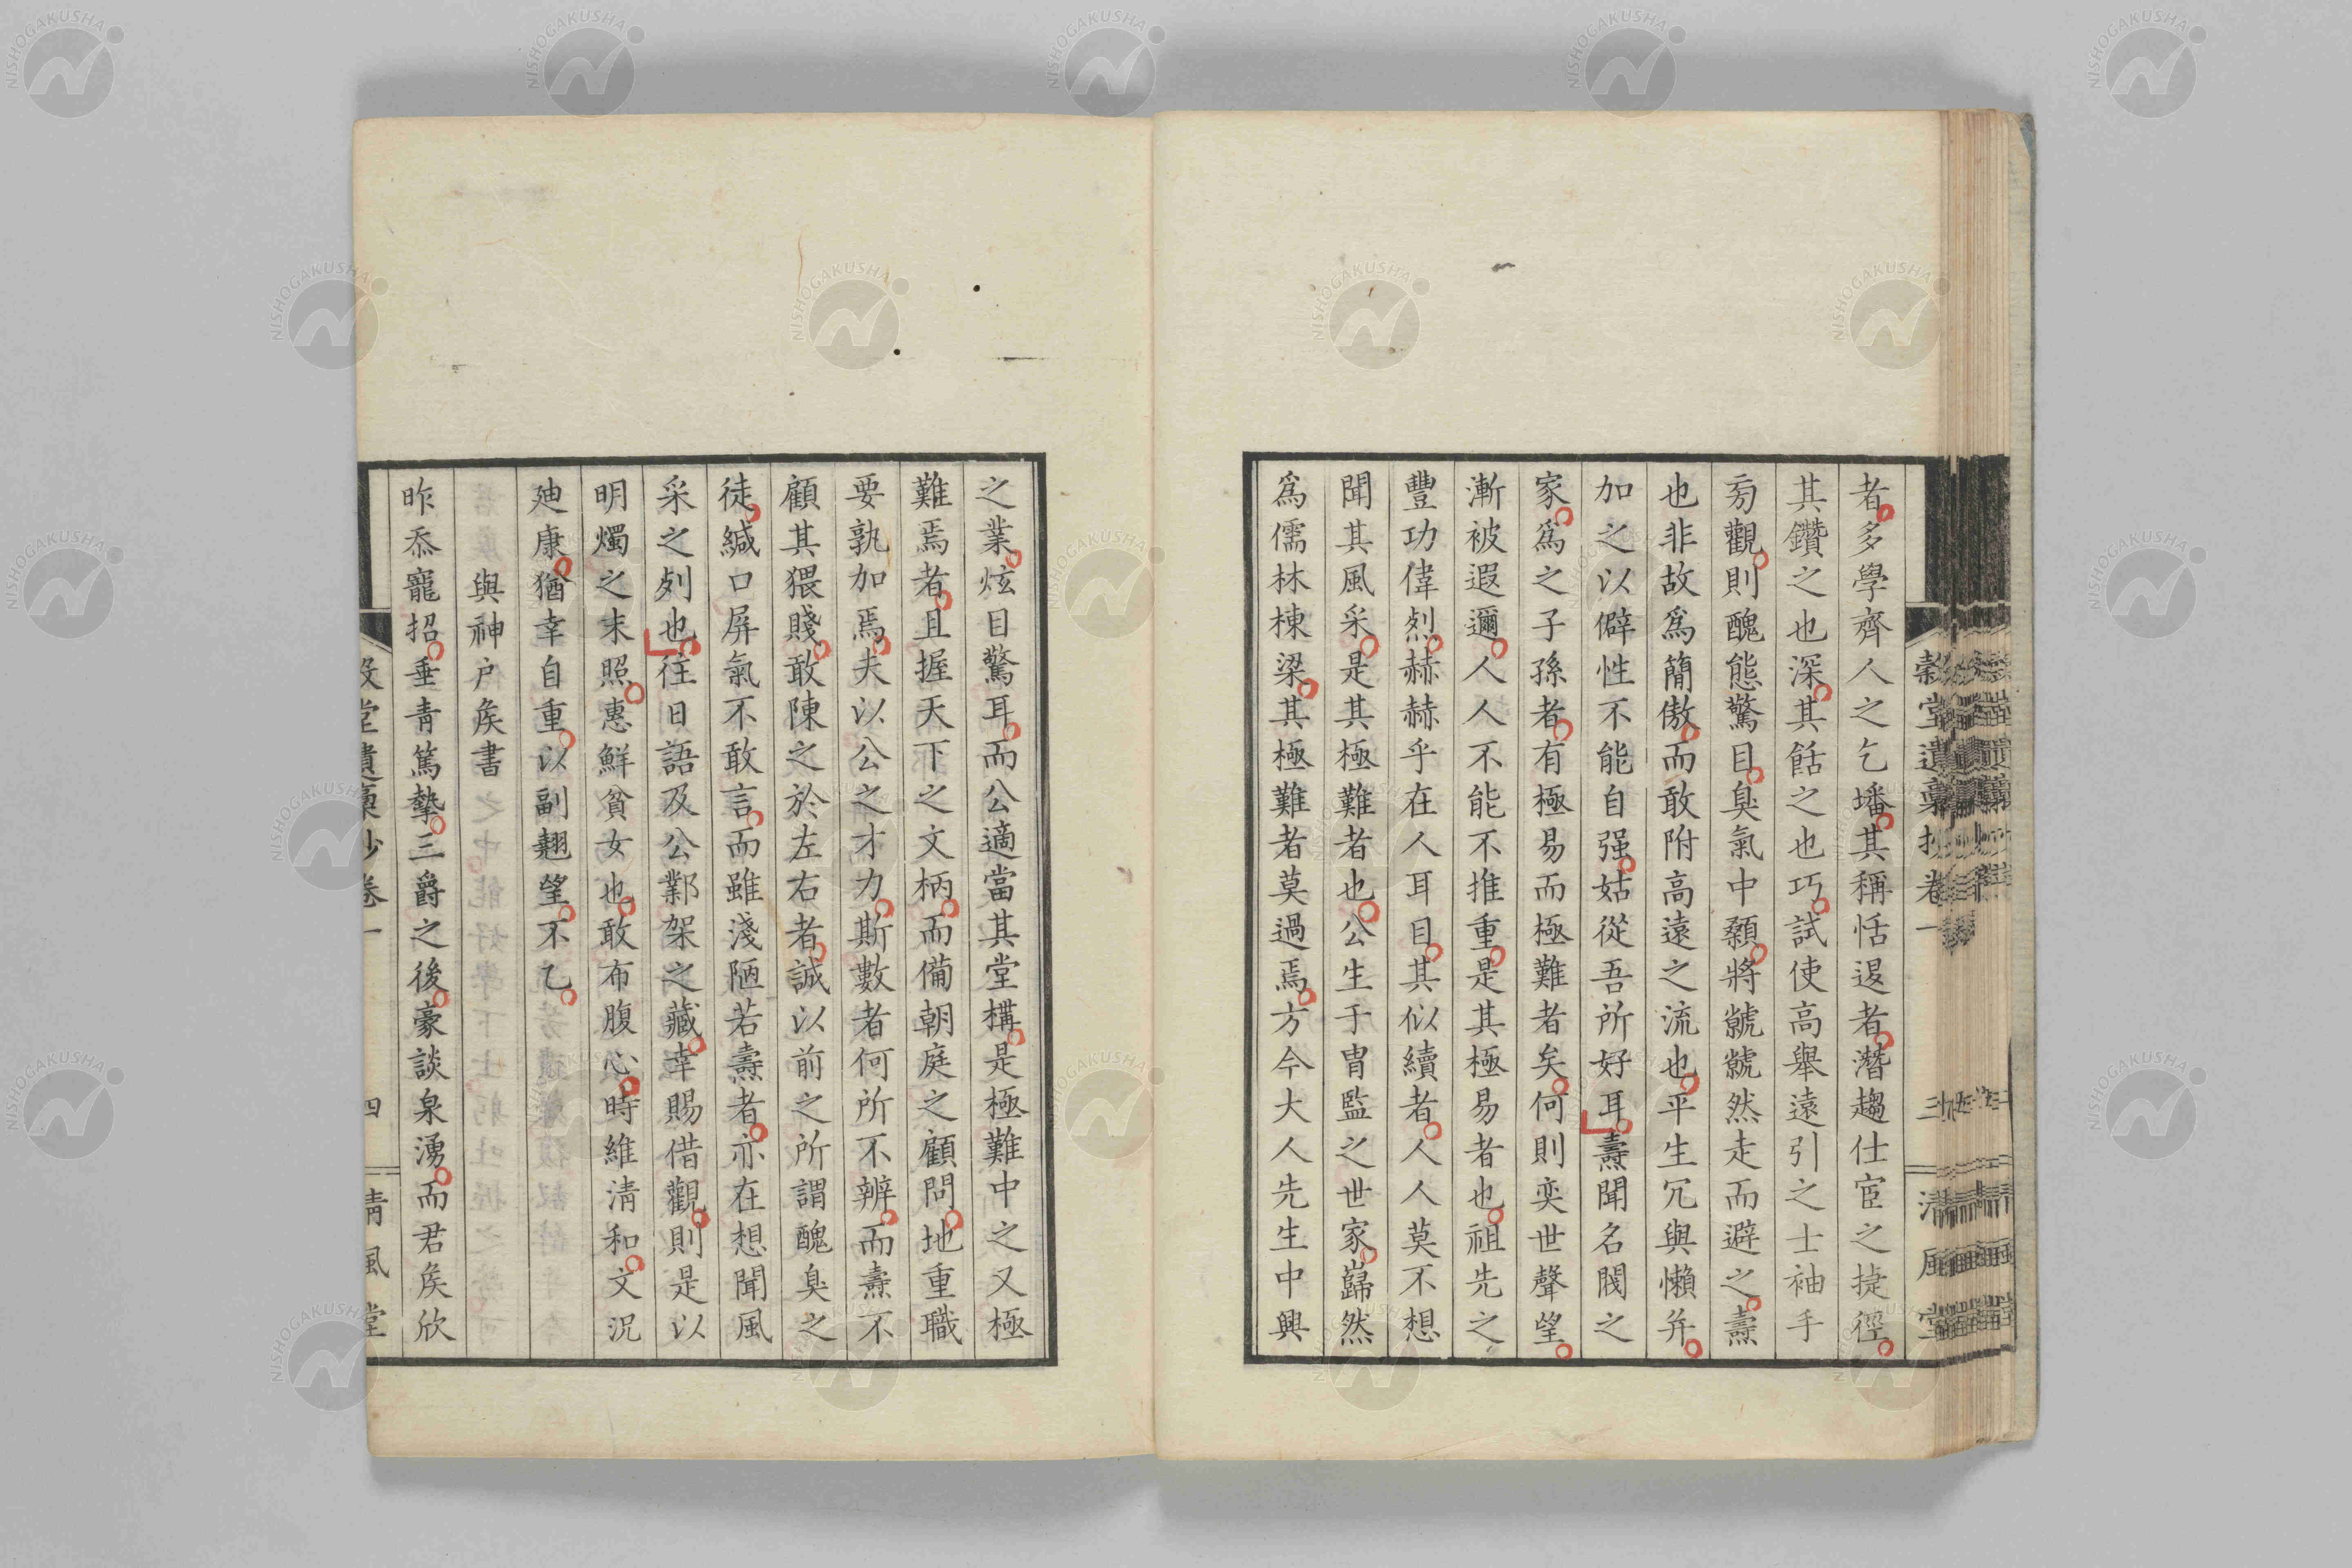 者多學齊人之乞墦其稱恬退者潛趨仕宦之捷徑
其鑽之也深其餂之也巧試使高舉遠引之士袖手
旁觀則醜態驚目臭氣中顙將虩虩然走而避之燾
也非故爲簡傲而敢附高遠之流也平生冗與懶并
加之以僻性不能自强姑從吾所好耳燾聞名閥之
家爲之子孫者有極易而極難者矣何則奕世聲望
漸被遐邇人人不能不推重是其極易者也祖先之
豐功偉烈赫赫乎在人耳目其似續者人人莫不想
聞其風采是其極難者也公生于冑監之世家巋然
爲儒林棟梁其極難者莫過焉方今大人先生中興
之業炫目驚耳而公適當其堂構是極難中之又極
難焉者且握天下之文柄而備朝庭之顧問地重職
要孰加焉夫以公之才力斯數者何所不辨而燾不
顧其猥賤敢陳之於左右者誠以前之所謂醜臭之
徒緘口屏氣不敢言而雖淺陋若燾者亦在想聞風
采之列也往日語及公鄴架之藏幸賜借觀則是以
明燭之末照惠鮮貧女也敢布腹心時維淸和文況
迪康猶幸自重以副翹望不乙
與神户矦書
昨忝寵招垂青篤摯三爵之後豪談泉湧而君矦欣
穀堂遺稾抄卷一
三
清風堂
穀堂遺稾抄卷一
四
清風堂
NISHOGAKUSHA